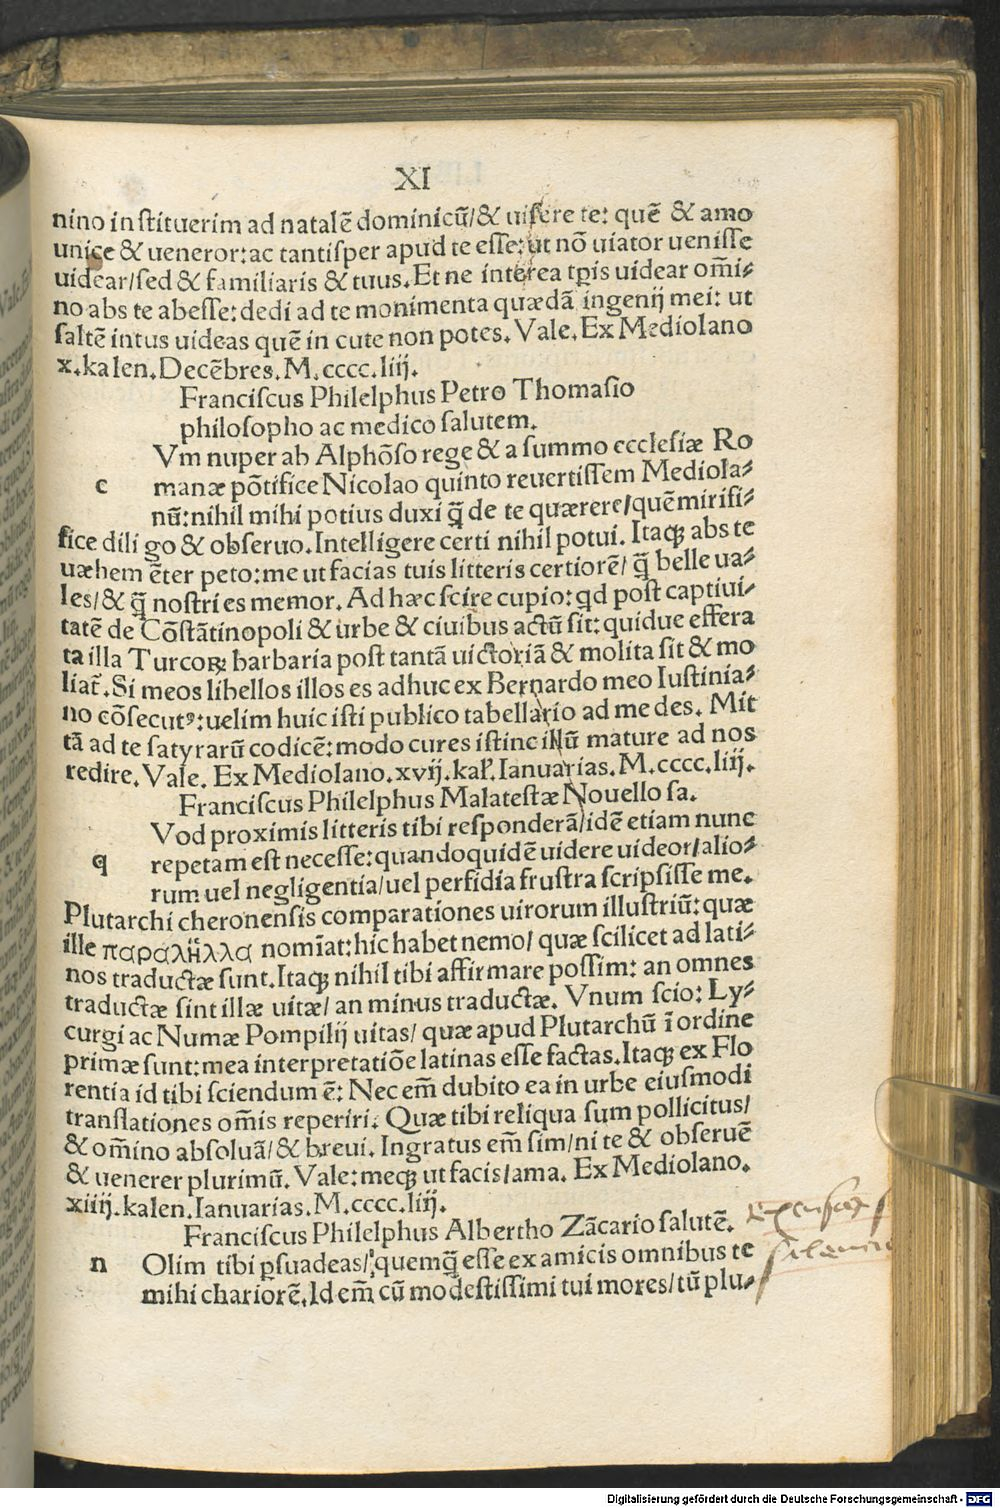 XI
nino inſtituerim ad natalē dominicū/& uiſere te: quē & amo
unice & ueneror: ac tantiſper apud te eſſe: ut nō uiator ueniſſe
uidear/ſed & familiaris & tuus. Et ne interea tꝑis uidear om̄i⸗
no abs te abeſſe: dedi ad te monimenta quædā ingenij mei: ut
ſaltē intus uideas quē in cute non potes. Vale. Ex Mediolano
x. kalen. Decēbres. M. cccc. liij.
Franciſcus Philelphus Petro Thomaſio
philoſopho ac medico ſalutem.
Vm nuper ab Alphōſo rege & a ſummo eccleſiæ Ro
c manæ pōtifice Nicolao quinto reuertiſſem Mediola⸗
nū: nihil mihi potius duxi q̄ de te quærere/quē mirifi⸗
fice dili go & obſeruo. Intelligere certi nihil potui. Itaqꝫ abs te
uæhem ēter peto: me ut facias tuis litteris certiorē/ q̄ belle ua⸗
les/& q̄ noſtri es memor. Ad hæc ſcire cupio: qd poſt captiui⸗
tatē de Cōſtātinopoli & urbe & ciuibus actū ſit: quidue effera
ta illa Turcoꝝ barbaria poſt tantā uictoriā & molita ſit & mo
liat̄. Si meos libellos illos es adhuc ex Bernardo meo Iuſtinia⸗
no cōſecutꝰ: uelim huic iſti publico tabellario ad me des. Mit
tā ad te ſatyrarū codicē: modo cures iſtinc illū mature ad nos
redire. Vale. Ex Mediolano. xvij. kal̄. Ianuarias. M. cccc. liij.
Franciſcus Philelphus Malateſtæ Nouello ſa.
Vod proximis litteris tibi reſponderā/idē etiam nunc
q repetam eſt neceſſe: quandoquidē uidere uideor/alio⸗
rum uel negligentia/uel perfidia fruſtra ſcripſiſſe me.
Plutarchi cheronenſis comparationes uirorum illuſtriū: quæ
ille παραλήλλα nomīat: hic habet nemo/ quæ ſcilicet ad lati⸗
nos traductæ ſunt. Itaqꝫ nihil tibi affirmare poſſim: an omnes
traductæ ſint illæ uitæ/ an minus traductæ. Vnum ſcio: Ly⸗
curgi ac Numæ Pompilij uitas/ quæ apud Plutarchū ī ordine
primæ ſunt: mea interpretatiōe latinas eſſe factas. Itaqꝫ ex Flo
rentia id tibi ſciendum ē: Nec em̄ dubito ea in urbe eiuſmodi
tranſlationes om̄is reperiri. Quæ tibi reliqua ſum pollicitus/
& om̄ino abſoluā/& breui. Ingratus em̄ ſim/ni te & obſeruē
& uenerer plurimū. Vale: meqꝫ ut facis/ama. Ex Mediolano.
xiiij. kalen. Ianuarias. M. cccc. liij.
Franciſcus Philelphus Albertho Zācario ſalutē.
n Olim tibi ꝑſuadeas/quemq̄ eſſe ex amicis omnibus te
mihi chariorē. Id em̄ cū modeſtiſſimi tui mores/tū plu⸗
Digitalisierung gefördert durch die Deutsche Forschungsgemeinschaft - DFG